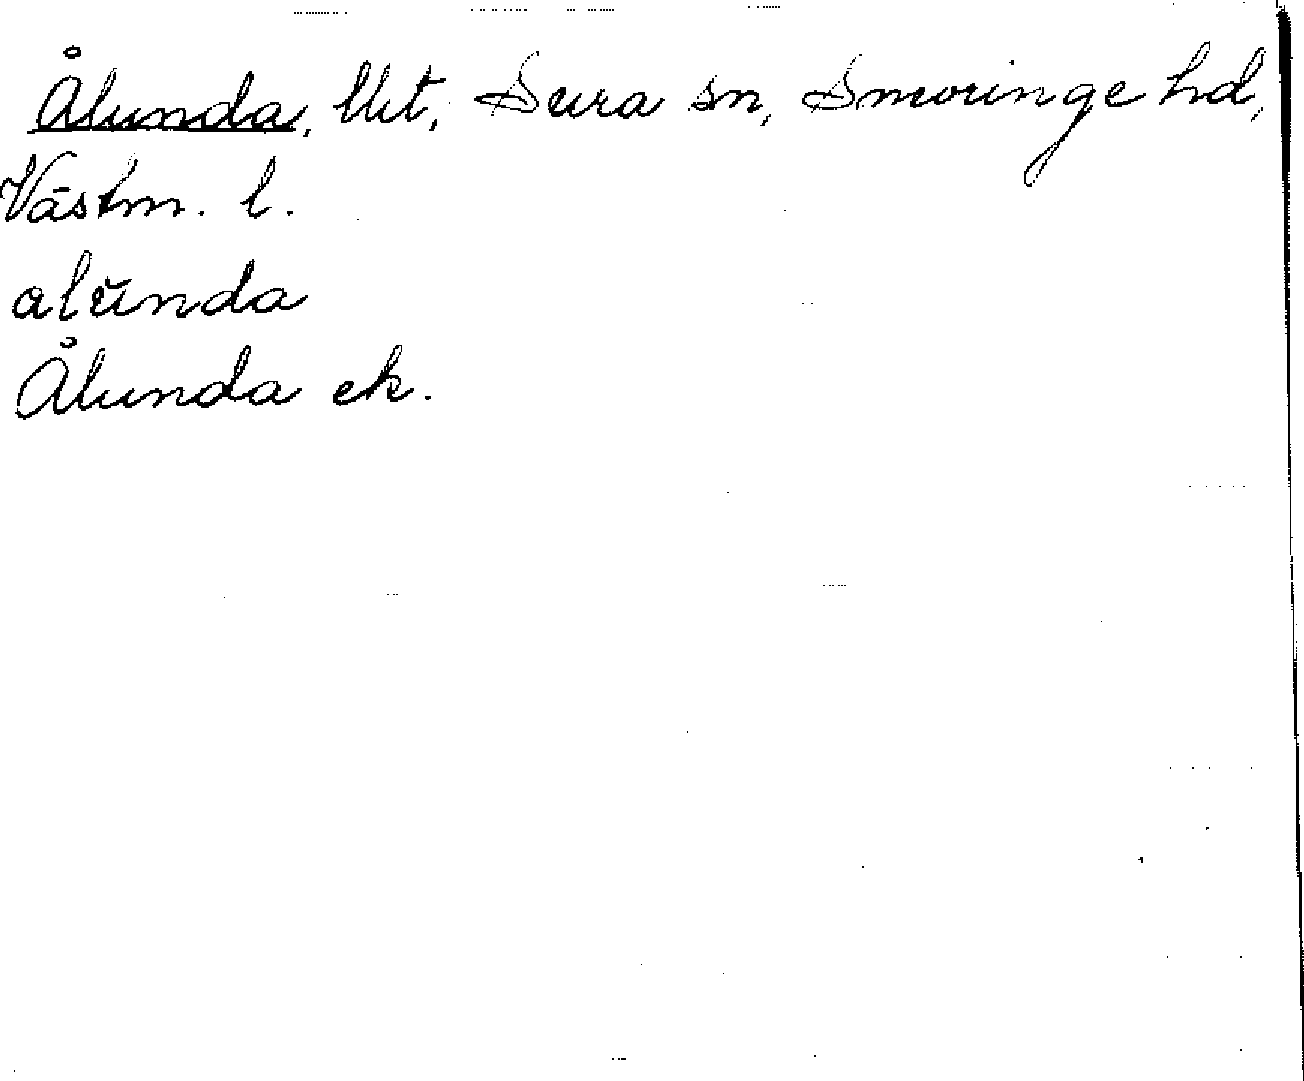 Ålunda, Utt, Sura sn, Snevringe hd,
Västm. l.
alŭnda
Ålunda ek.